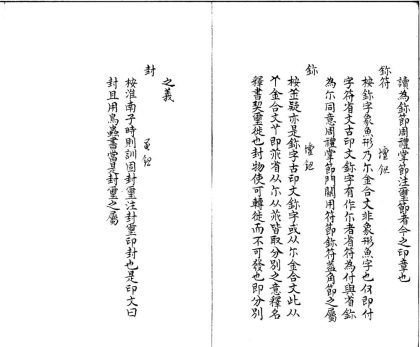 讀為鉨節周禮掌節注璽節者今之印章也
鉨符 壇鈕
按鉨字象魚形乃尔金合文非象形魚字也付即付
字符省文古印文鉨字有作尔者省符為付與省鉨
為尔同意周禮掌節門關用符節鉨符蓋角節之屬
鉨 壇鈕
按並疑亦是鉨字古印文鉨字或从尔金合文此从
金合文即省从尔从皆取分別之意釋名
釋書契璽徙也封物使可轉徙而不可發也即分別
之義
封 鈕
按淮南子時則訓固封璽注封璽印封也是印文曰
封且用鳥蟲書當是封璽之屬